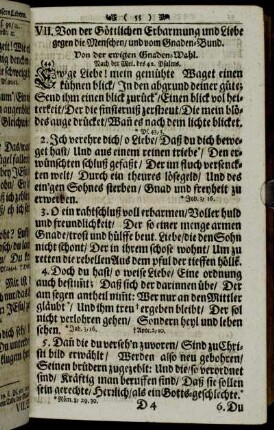 ( 55 )
VII. Von der Göttlichen Erbarmung und Liebe
gegen die Menschen/ und vom Gnaden-Bund.
Von der ewigen Gnaden-Wahl.
Nach der Mel. des 42. Psalms.
Ewge Liebe! mein gemühte Waget einen
kühnen blick/ In den abgrund deiner güte;
Send ihm einen blick zurück/ Einen blick vol hei-
terkeit/ Der die finsterniß zerstreut/ Die mein blö-
des auge drücket/ Wann es nach dem lichte blicket.
2. Ich verehre dich/ o Liebe/ Daß du dich bewe-
get hast/ Und aus einem reinen triebe/ Den er-
wünschten schluß gefaßt/ Der im fluch versenck-
ten welt/ Durch ein theures lösegeld/ Und des
ein'gen Sohnes sterben/ Gnad und freyheit zu
erwerben. * Joh. 3/ 16.
3. O ein rahtschluß voll erbarmen/ Voller huld
und freundlichkeit/ Der so einer menge armen
Gnade/ trost und hülffe beut. Liebe/ die den Sohn
nicht schont/ Der in ihrem schosse wohnt/ Um zu
retten die rebellen Aus dem pful der tieffen hölle.
4. Doch du hast/ o weise Liebe/ Eine ordnung
auch bestimt; Daß sich der darinnen übe/ Der
am segen antheil nimt: Wer nur an den Mittler
gläubt/ Und ihm treu ergeben bleibt/ Der sol
nicht verlohren gehen/ Sondern heyl und leben
sehen. * Joh. 3/16.
5. Dan die du verseh'n zuvoren/ Sind zu Chri-
sti bild erwählt/ Werden also neu gebohren/
Seinen brüdern zugezehlt: Und die so verordnet
sind/ Kräftig man beruffen sind/ Daß sie sollen
sein gerechte/ Herrlich/ als ein Gotts-geschlechte.
* Röm. 8: 29. 30.
D 4
6. Du